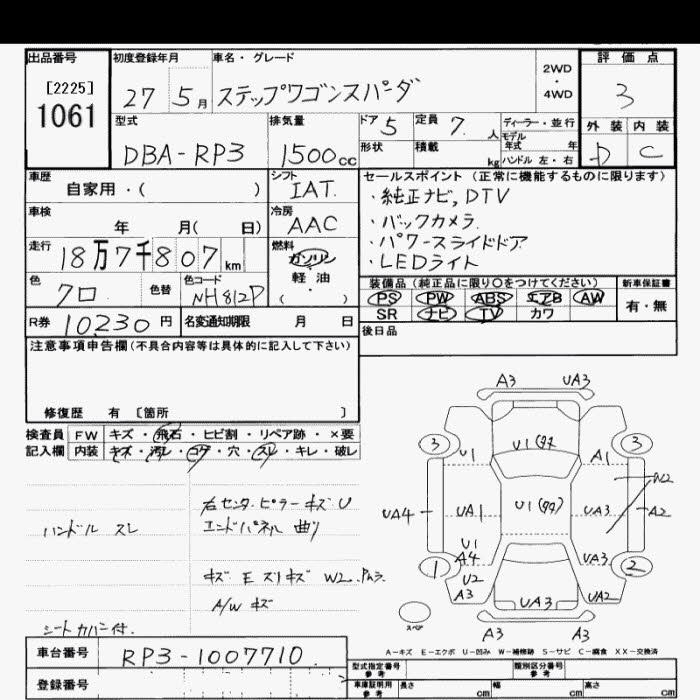 出品番号
[2225]
1061
初度登録年月
27 5月
車名・グレード
ステップワゴンスパーダ
2WD
・
4WD
評価点
3
外装 内装
D C
型式
DBA-RP3
排気量
1500cc
ドア 5
定員 7. 人
ディーラー・並行
モデル年式 年
形状
積載 kg
ハンドル 左・右
車歴
自家用・( )
シフト
IAT.
車検
年 月( 日)
冷房
AAC
走行
18万7千807 km
燃料
ガソリン
軽油
・( )
色
クロ
色替
色コード
NH812P
R券 10,230 円
名変通知期限 月 日
セールスポイント (正常に機能するものに限ります)
・純正ナビ, DTV
・バックカメラ
・パワースライドドア
・LEDライト
装備品 (純正品に限り〇をつけてください)
PS PW ABS エアB AW
SR ナビ TV カワ
新車保証書
有・無
後日品
注意事項申告欄(不具合内容等は具体的に記入して下さい)
修復歴 有 〔箇所 〕
検査員記入欄
FW キズ・飛石・ヒビ割・リペア跡・×要
内装 キズ・汚レ・コゲ・穴・スレ・キレ・破レ
ハンドル スレ
シートカバー付.
右センターピラー キズ U
エンドパネル 曲り
キズ E スリキズ W2
A/W キズ
A3 UA3
3 3
U1 U1(タタ A1
W2
UA4 UA1 U1(タタ) UA3 A2
U1
A4 UA3
1 2
U2
A3 UA3 UA2
スペア
A3 A3
A-キズ E-エクボ U-凹み W-補修跡 S-サビ C-腐食 XX-交換済
車台番号 RP3-1007710
登録番号
型式指定番号
参考
類別区分番号
参考
車庫証明用
参考
長さ cm 幅 cm 高さ cm